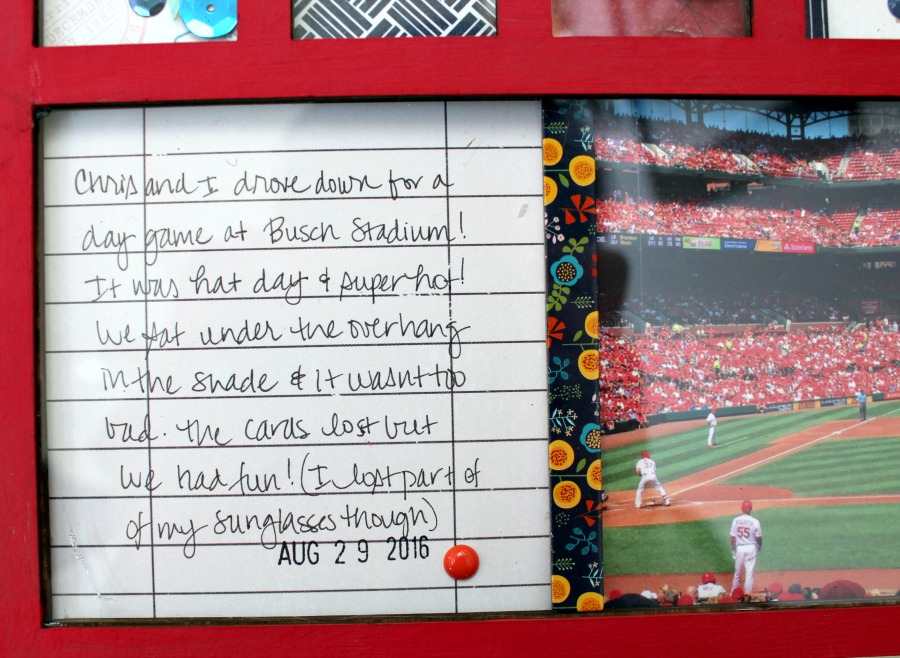 Chris and I drove down for a
day game at Busch Stadium!
It was hat day & super hot!
We sat under the overhang
in the shade & it wasnt too
bad. The cards lost but
we had fun! (I lost part of
of my sunglasses though)
AUG 29 2016
55